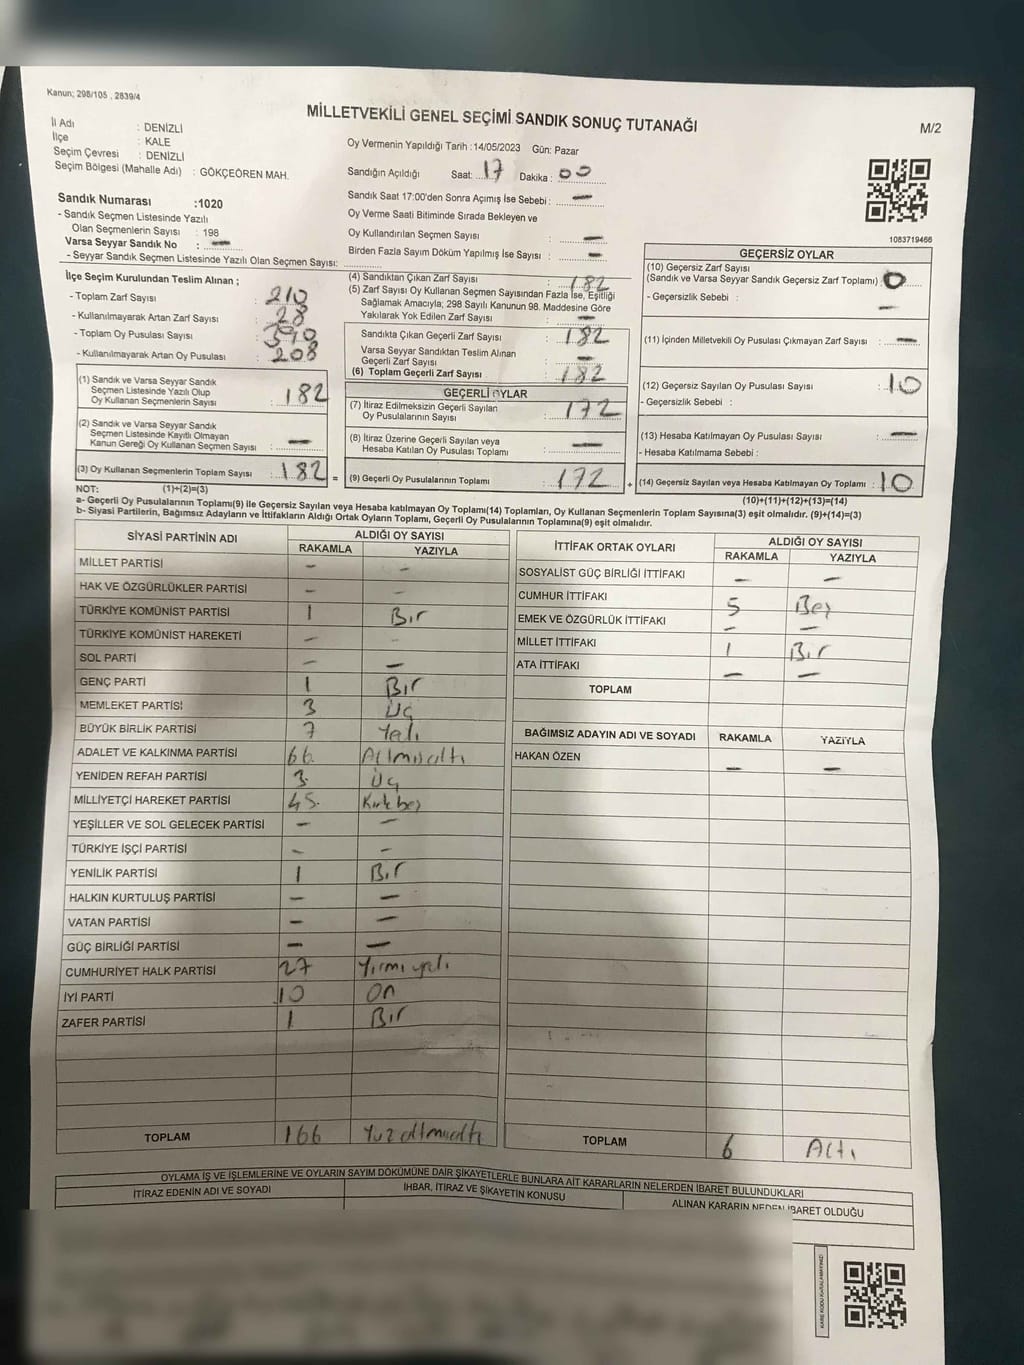 Kanun; 298/105 , 2839/4
MİLLETVEKİLİ GENEL SEÇİMİ SANDIK SONUÇ TUTANAĞI
M/2
İl Adı : DENİZLİ
İlçe : KALE
Seçim Çevresi : DENİZLİ
Seçim Bölgesi (Mahalle Adı) : GÖKÇEÖREN MAH.
Sandık Numarası :1020
- Sandık Seçmen Listesinde Yazılı
Olan Seçmenlerin Sayısı : 198
Varsa Seyyar Sandık No : —
- Seyyar Sandık Seçmen Listesinde Yazılı Olan Seçmen Sayısı:
Oy Vermenin Yapıldığı Tarih :14/05/2023 Gün: Pazar
Sandığın Açıldığı Saat: 17 Dakika : 00
Sandık Saat 17:00'den Sonra Açımış İse Sebebi : —
Oy Verme Saati Bitiminde Sırada Bekleyen ve
Oy Kullandırılan Seçmen Sayısı : —
Birden Fazla Sayım Döküm Yapılmış İse Sayısı : —
1083719466
İlçe Seçim Kurulundan Teslim Alınan ;
- Toplam Zarf Sayısı : 210
- Kullanılmayarak Artan Zarf Sayısı : 28
- Toplam Oy Pusulası Sayısı : 390
- Kullanılmayarak Artan Oy Pusulası : 208
(1) Sandık ve Varsa Seyyar Sandık
Seçmen Listesinde Yazılı Olup
Oy Kullanan Seçmenlerin Sayısı : 182
(2) Sandık ve Varsa Seyyar Sandık
Seçmen Listesinde Kayıtlı Olmayan
Kanun Gereği Oy Kullanan Seçmen Sayısı : —
(3) Oy Kullanan Seçmenlerin Toplam Sayısı : 182 =
(4) Sandıktan Çıkan Zarf Sayısı : 182
(5) Zarf Sayısı Oy Kullanan Seçmen Sayısından Fazla İse, Eşitliği
Sağlamak Amacıyla; 298 Sayılı Kanunun 98. Maddesine Göre
Yakılarak Yok Edilen Zarf Sayısı : —
Sandıkta Çıkan Geçerli Zarf Sayısı : 182
Varsa Seyyar Sandıktan Teslim Alınan
Geçerli Zarf Sayısı : —
(6) Toplam Geçerli Zarf Sayısı : 182
GEÇERLİ OYLAR
(7) İtiraz Edilmeksizin Geçerli Sayılan
Oy Pusulalarının Sayısı : 172
(8) İtiraz Üzerine Geçerli Sayılan veya
Hesaba Katılan Oy Pusulası Toplamı : —
(9) Geçerli Oy Pusulalarının Toplamı : 172 +
GEÇERSİZ OYLAR
(10) Geçersiz Zarf Sayısı
(Sandık ve Varsa Seyyar Sandık Geçersiz Zarf Toplamı) : 0
- Geçersizlik Sebebi : —
(11) İçinden Milletvekili Oy Pusulası Çıkmayan Zarf Sayısı : —
(12) Geçersiz Sayılan Oy Pusulası Sayısı : 10
- Geçersizlik Sebebi :
(13) Hesaba Katılmayan Oy Pusulası Sayısı : —
- Hesaba Katılmama Sebebi :
(14) Geçersiz Sayılan veya Hesaba Katılmayan Oy Toplamı : 10
NOT: (1)+(2)=(3)
(10)+(11)+(12)+(13)=(14)
a- Geçerli Oy Pusulalarının Toplamı(9) ile Geçersiz Sayılan veya Hesaba katılmayan Oy Toplamı(14) Toplamları, Oy Kullanan Seçmenlerin Toplam Sayısına(3) eşit olmalıdır. (9)+(14)=(3)
b- Siyasi Partilerin, Bağımsız Adayların ve İttifakların Aldığı Ortak Oyların Toplamı, Geçerli Oy Pusulalarının Toplamına(9) eşit olmalıdır.
SİYASİ PARTİNİN ADI ALDIĞI OY SAYISI
RAKAMLA YAZIYLA
MİLLET PARTİSİ — —
HAK VE ÖZGÜRLÜKLER PARTİSİ — —
TÜRKİYE KOMÜNİST PARTİSİ 1 Bir
TÜRKİYE KOMÜNİST HAREKETİ — —
SOL PARTİ — —
GENÇ PARTİ 1 Bir
MEMLEKET PARTİSİ 3 Üç
BÜYÜK BİRLİK PARTİSİ 7 Yedi
ADALET VE KALKINMA PARTİSİ 66 Altmışaltı
YENİDEN REFAH PARTİSİ 3 Üç
MİLLİYETÇİ HAREKET PARTİSİ 45 Kırkbeş
YEŞİLLER VE SOL GELECEK PARTİSİ — —
TÜRKİYE İŞÇİ PARTİSİ — —
YENİLİK PARTİSİ 1 Bir
HALKIN KURTULUŞ PARTİSİ — —
VATAN PARTİSİ — —
GÜÇ BİRLİĞİ PARTİSİ — —
CUMHURİYET HALK PARTİSİ 27 Yirmiyedi
İYİ PARTİ 10 On
ZAFER PARTİSİ 1 Bir
TOPLAM 166 Yüzaltmışaltı
İTTİFAK ORTAK OYLARI ALDIĞI OY SAYISI
RAKAMLA YAZIYLA
SOSYALİST GÜÇ BİRLİĞİ İTTİFAKI — —
CUMHUR İTTİFAKI 5 Beş
EMEK VE ÖZGÜRLÜK İTTİFAKI — —
MİLLET İTTİFAKI 1 Bir
ATA İTTİFAKI — —
TOPLAM
BAĞIMSIZ ADAYIN ADI VE SOYADI RAKAMLA YAZIYLA
HAKAN ÖZEN — —
TOPLAM 6 Altı
OYLAMA İŞ VE İŞLEMLERİNE VE OYLARIN SAYIM DÖKÜMÜNE DAİR ŞİKAYETLERLE BUNLARA AİT KARARLARIN NELERDEN İBARET BULUNDUKLARI
İTİRAZ EDENİN ADI VE SOYADI İHBAR, İTİRAZ VE ŞİKAYETİN KONUSU ALINAN KARARIN NEDEN İBARET OLDUĞU
KARE KODU KARALAMAYINIZ!